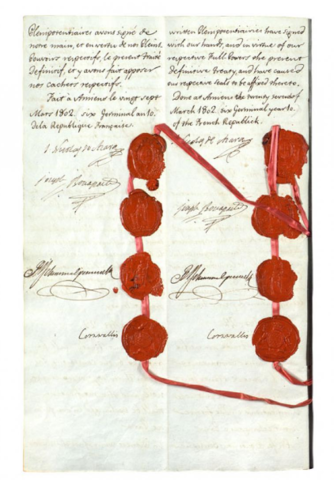 Plenipotentiaires avons signé de
notre main, et en vertu de nos Pleins
Pouvoirs respectifs, le present Traité
Definitif, et y avons fait apposer
nos cachets respectifs.
Fait à Amiens le vingt sept
Mars 1802. six Germinal an 10.
de la Republique Française.
J. Nicolas de Azara
Joseph Bonaparte
Cornwallis
written Plenipotentiaries have signed
with our hands, and in virtue of our
respective Full Powers the present
definitive Treaty, and have caused
our respective seals to be affixed thereto.
Done at Amiens the twenty seventh of
March 1802. six Germinal year 10.
of the French Republick.
de Azara
Joseph Bonaparte
Cornwallis